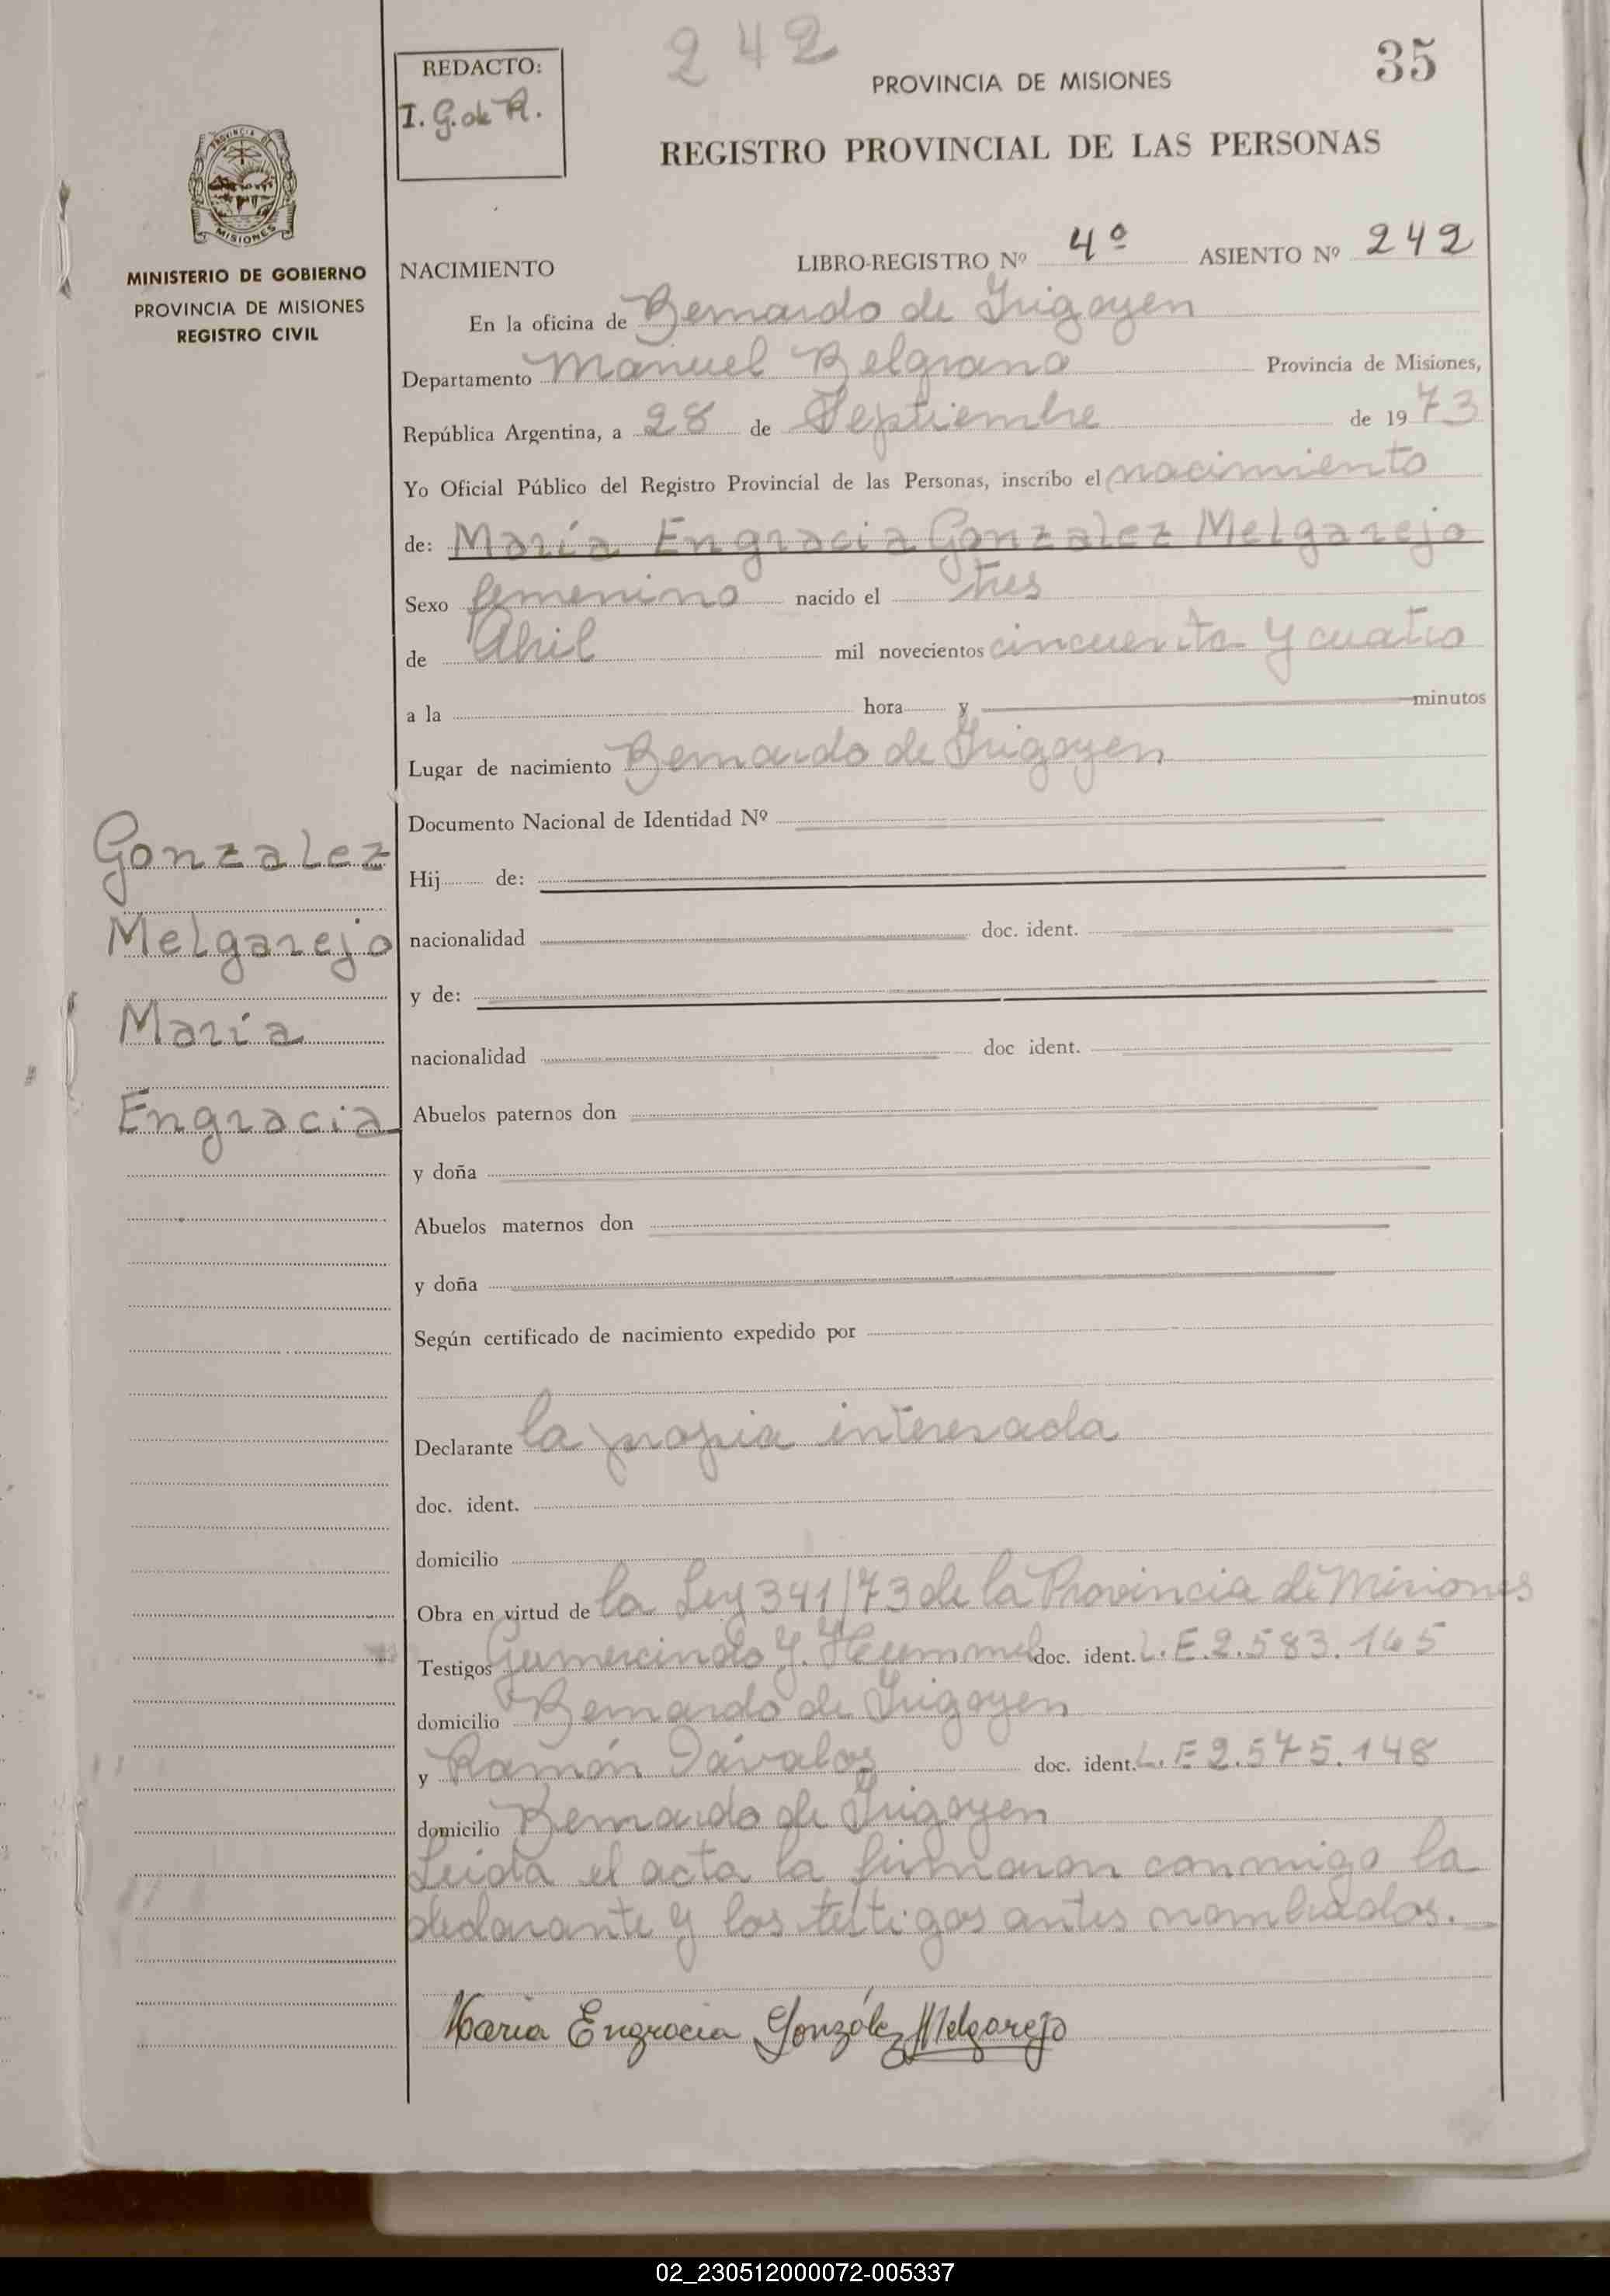 242
35
REDACTO:
I. G. de R.
PROVINCIA DE MISIONES
REGISTRO PROVINCIAL DE LAS PERSONAS
PROVINCIA DE
MISIONES
MINISTERIO DE GOBIERNO
PROVINCIA DE MISIONES
REGISTRO CIVIL
NACIMIENTO LIBRO-REGISTRO Nº 4º ASIENTO Nº 242
En la oficina de Bernardo de Irigoyen
Departamento Manuel Belgrano Provincia de Misiones,
República Argentina, a 28 de Septiembre de 1973
Yo Oficial Público del Registro Provincial de las Personas, inscribo el nacimiento
de: María Engracia Gonzalez Melgarejo
Sexo femenino nacido el tres
de Abril mil novecientos cincuenta y cuatro
a la hora y minutos
Lugar de nacimiento Bernardo de Irigoyen
Documento Nacional de Identidad Nº
Gonzalez
Melgarejo
María
Engracia
Hij de:
nacionalidad doc. ident.
y de:
nacionalidad doc ident.
Abuelos paternos don
y doña
Abuelos maternos don
y doña
Según certificado de nacimiento expedido por
Declarante la propia interesada
doc. ident.
domicilio
Obra en virtud de la Ley 341/73 de la Provincia de Misiones
Testigos Gumercindo Y. Hummel doc. ident. L.E. 2.583.165
domicilio Bernardo de Irigoyen
y Ramón Dávalos doc. ident. L.E 2.575.148
domicilio Bernardo de Irigoyen
Leida el acta la firmaron conmigo la
declarante y los testigos antes nombrados.
Maria Engracia González Melgarejo
02_230512000072-005337